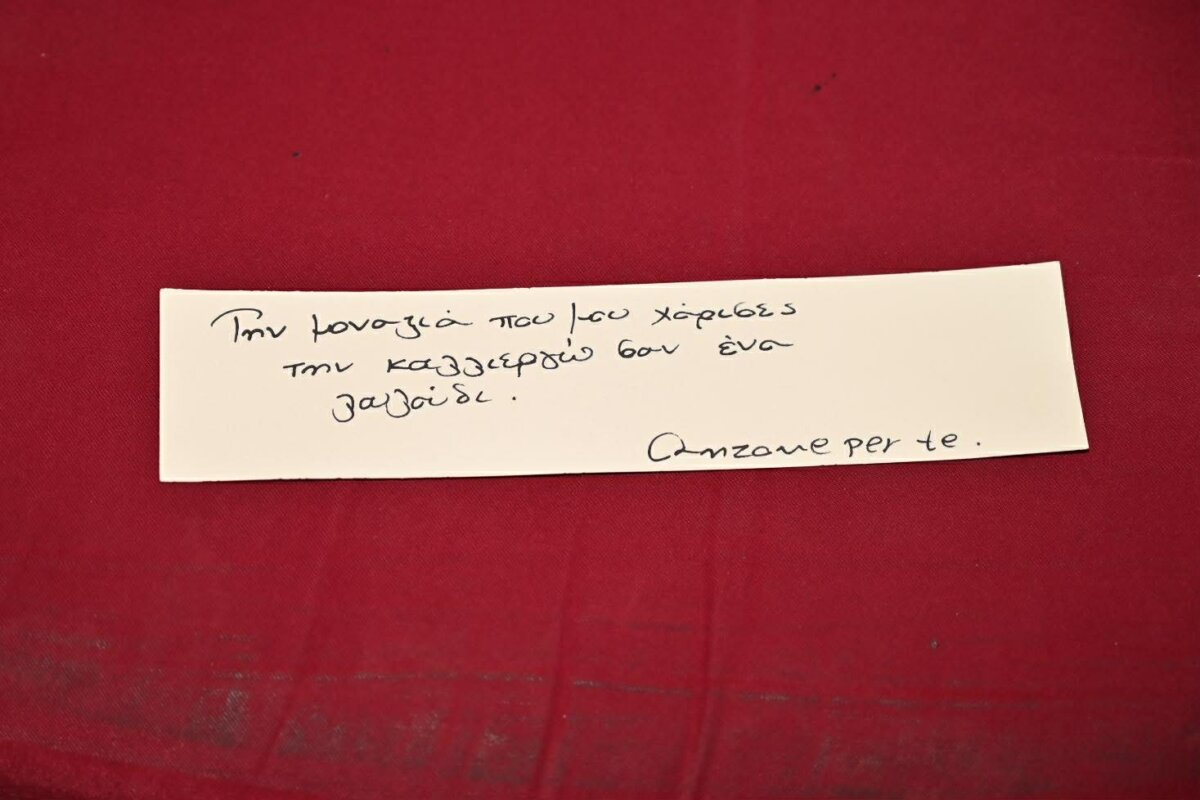 Την μοναξιά που μου χάρισες
την καλλιεργώ σαν ένα
λουλούδι.
Canzone per te.